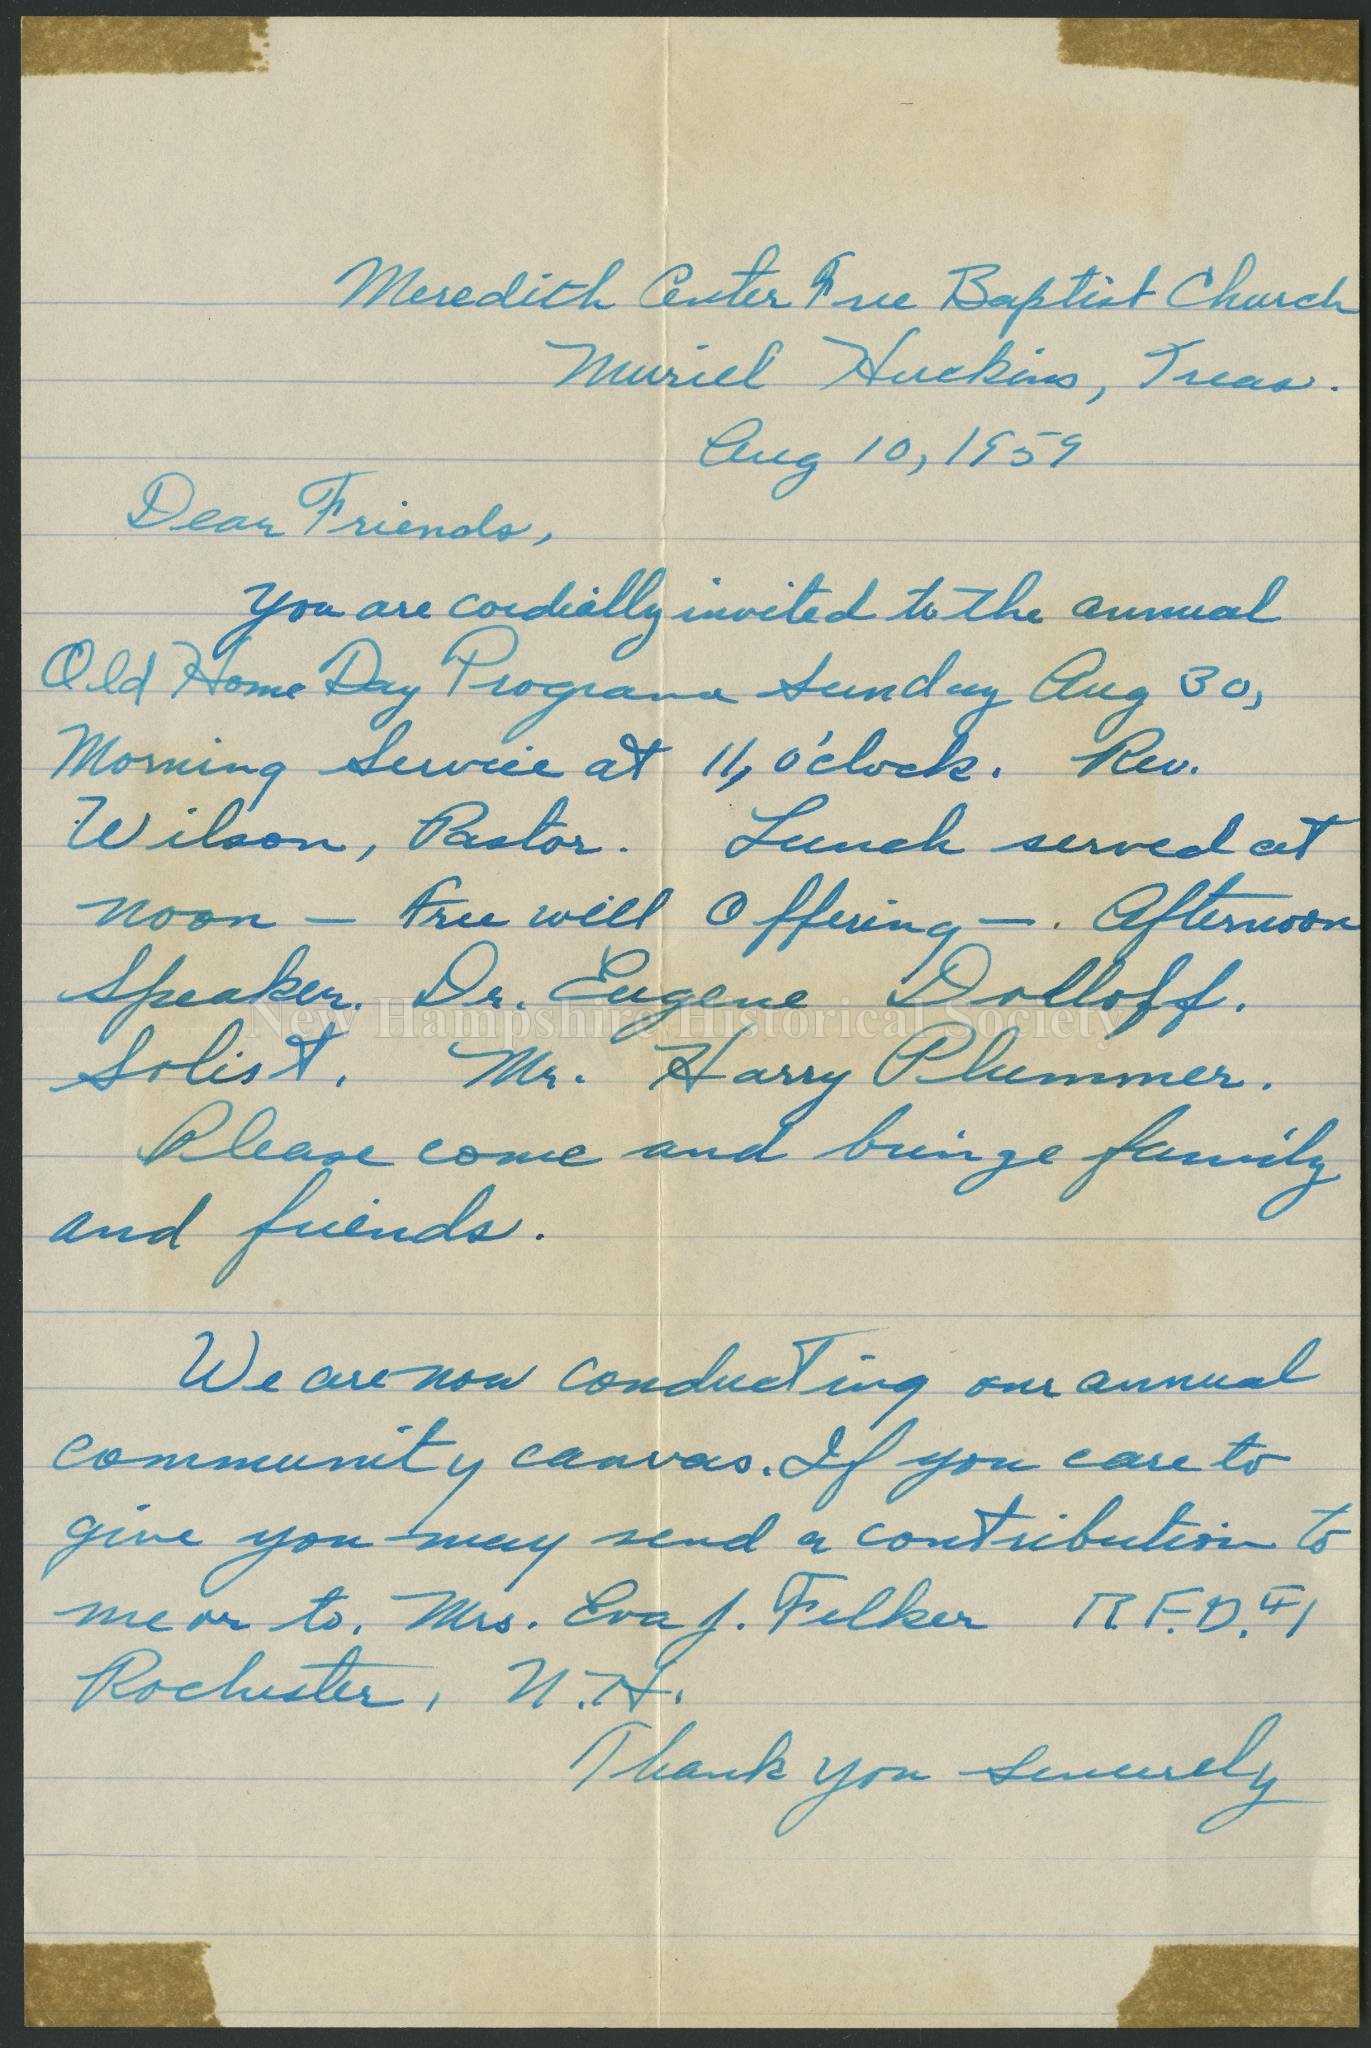 Meredith Center Free Baptist Church
Muriel Huckins, Treas.
Aug 10, 1959
Dear Friends,
You are cordially invited to the annual
Old Home Day Program Sunday Aug 30,
Morning Service at 11, o'clock. Rev.
Wilson, Pastor. Lunch served at
noon — Free will Offering —. Afternoon
Speaker. Dr. Eugene Dolloff.
New Hampshire Historical Society
Solist. Mr. Harry Plummer.
Please come and bringe family
and friends.
We are now conducting our annual
community canvas. If you care to
give you may send a contribution to
me or to. Mrs. Eva J. Felker R.F.D. #1
Rochester, N.H.
Thank you sincerely